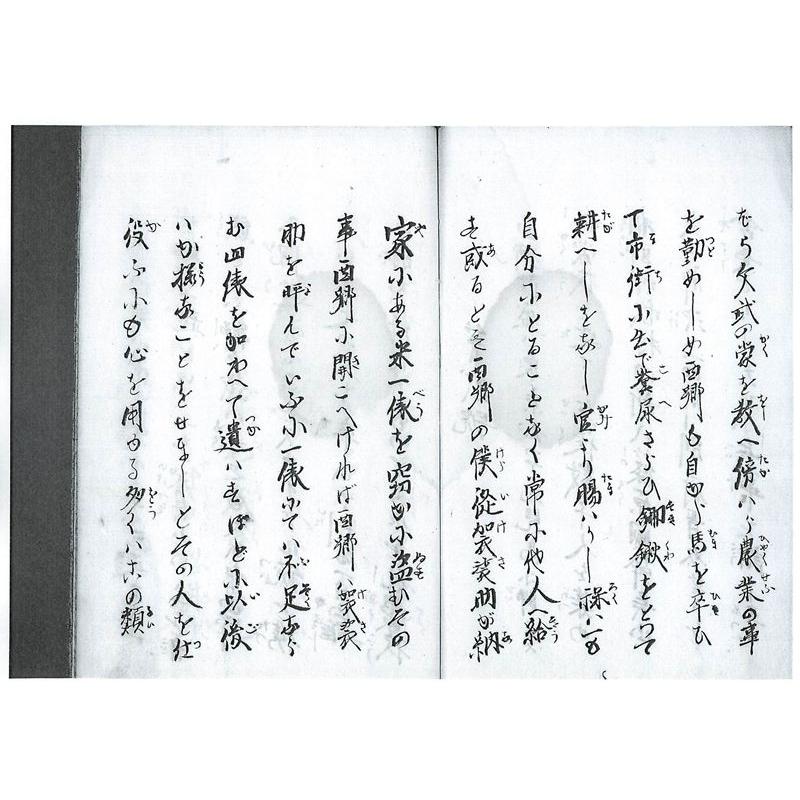 ぢら文武の業を教へ傍ハら農業の事
を勤めしめ西郷も自から馬を牽ひ
て市街に出で糞尿さらひ鋤鍬をとつて
耕へしをなし官より賜ハりし禄ハ一も
自分にとることなく常に他人へ給
す或るとき西郷の僕従袈裟助が納
家にある米一俵を窃かに盗むその
事西郷に聞こへければ西郷ハ袈裟
助を呼んでいふに一俵にてハ不足なら
む四俵を加わへて遣ハすほどに以後
ハか様なことをせましとその人を仕
役ふにも心を用ゆる多くハこの類